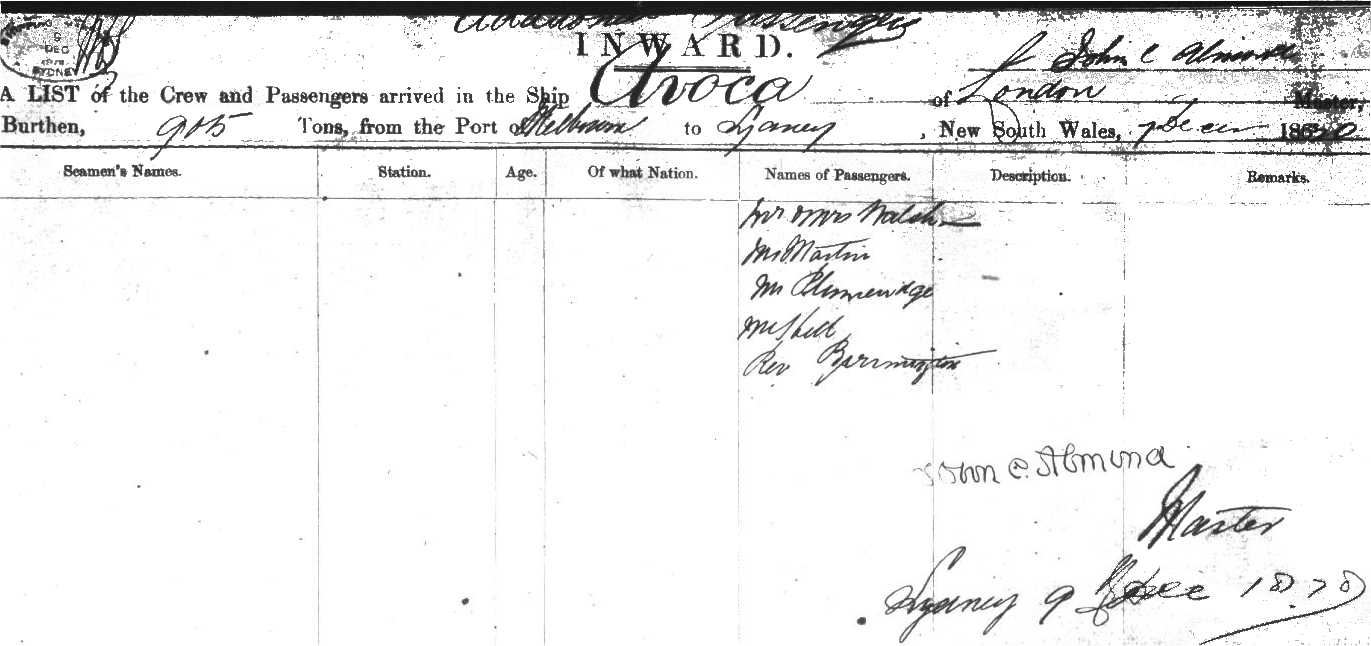 Additional Passengers
INWARD.
DEC
SYDNEY
A LIST of the Crew and Passengers arrived in the Ship Avoca of London John C Almond Master,
Burthen, 905 Tons, from the Port of Melbourne to Sydney, New South Wales, 7 Decem 18
Seamen's Names. Station. Age. Of what Nation. Names of Passengers. Description. Remarks.
Mr Mrs Walsh
Mr Martin
Mr
Mr
Rev Barrington
John C. Almond
Master
Sydney 9 Dec 1878